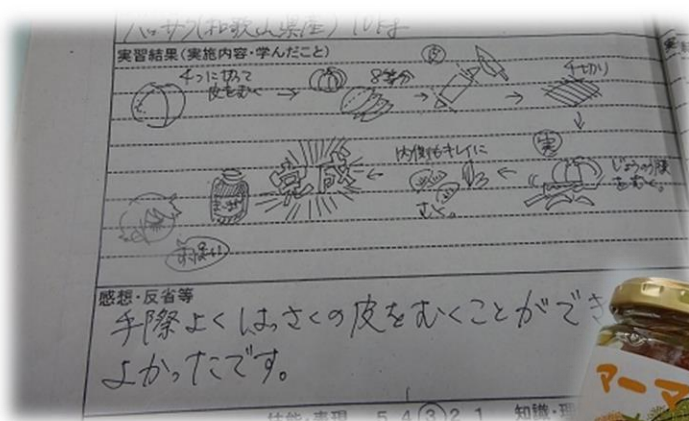 ハッサク(和歌山県産) 10は
実習結果(実施内容・学んだこと)
4つに切って
皮をむく
8等分
皮
千切り
実
じょうのう膜
をむく。
内側もキレイに
むく。
完成
感想・反省等
手際よくはっさくの皮をむくことができ
よかったです。
技能・表現 5 4 3 2 1 知識・理
アーマ